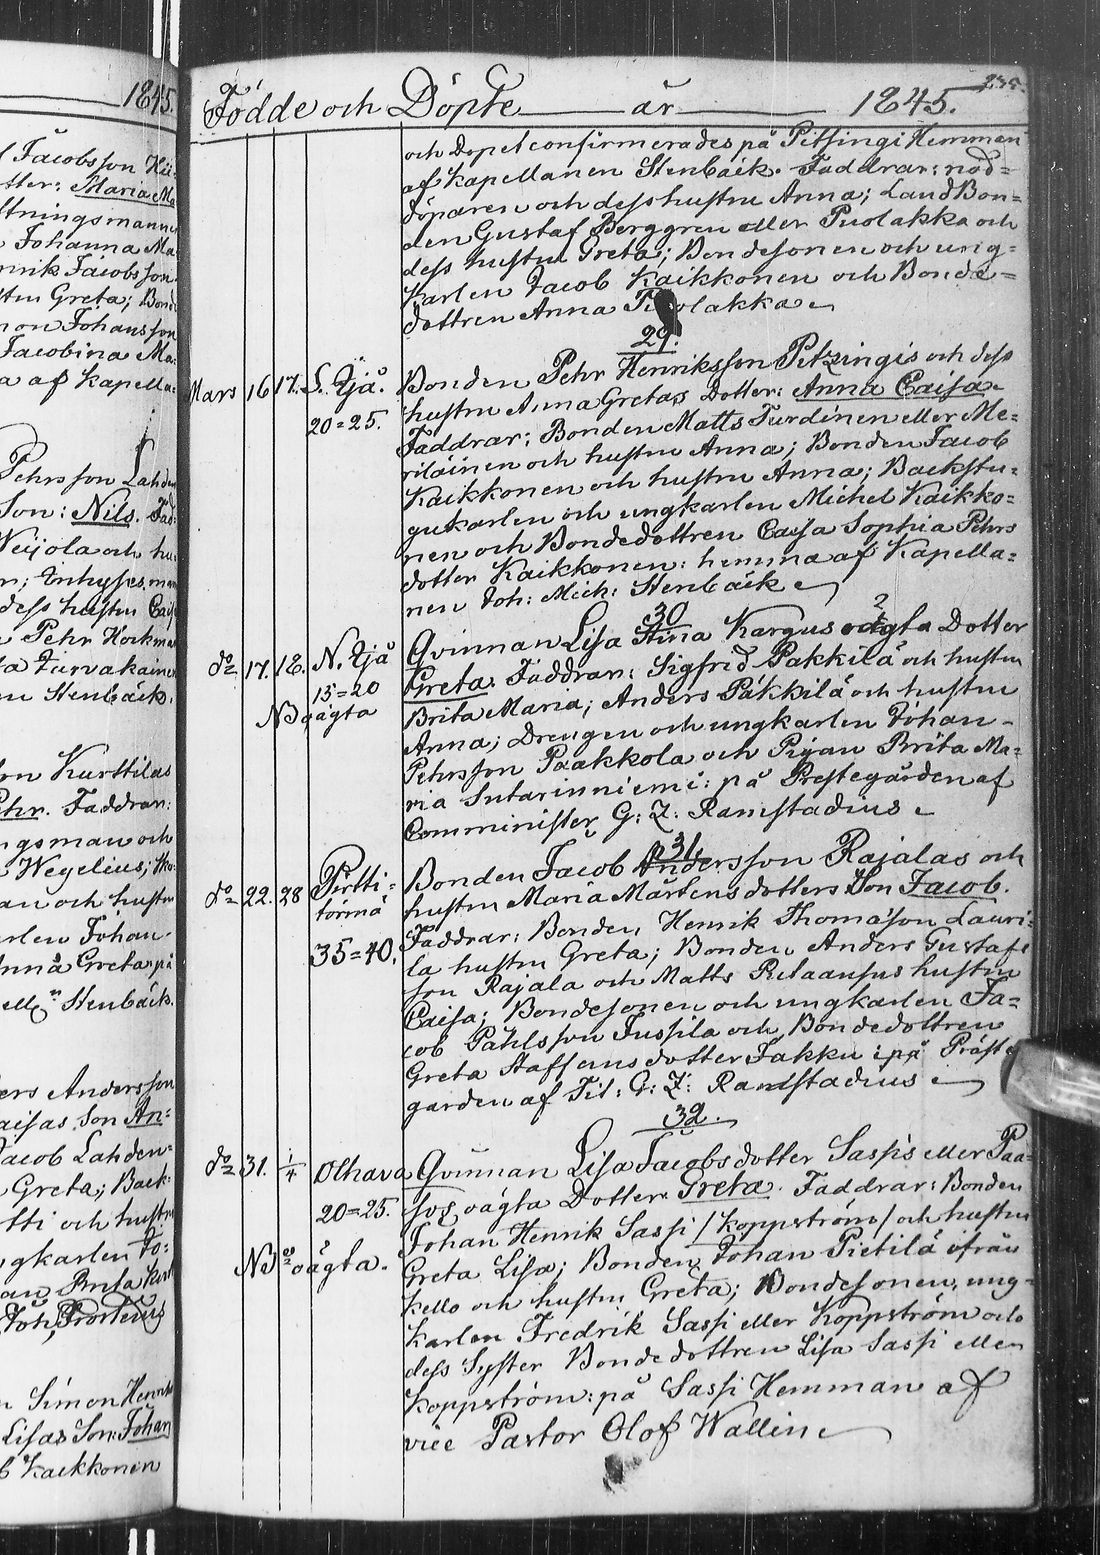 1845.
l Jacobsson
tter: Maria
ftningsmannen
Johanna Ma
nrik Jacobsson
Greta; Bond
Johansson
Jacobina Ma:
a af Kapella:
Pehrsson
Son: Nils.
och
dess hustru
Pehr
Stenbäck.
Kurttilas
Pehr. Faddrar:
ngsman och
Wegelius;
an och hustru
arlen Johan
Anna Greta på
Stenbäck.
ers Andersson
aisas Son An:
Jacob Lahden-
Greta; Back-
tti och hustru
gkarlen Jo:
Brita
Simon
Lisas Son: Johan
b Kaikkonen
235.
Födde och Döpte år 1845.
och Dopet confirmerades på Pitsingi Hemman
af Kapellanen Stenbäck. Faddrar: nöd=
döparen och dess hustru Anna; Land Bon=
den Gustaf Berggren eller Puolakka och
dess hustru Greta; Bondesonen och ung=
Karlen Jacob Kaikkonen och Bonde=
dottren Anna Puolakka.
29.
Mars 16 17. S. Ijå. Bonden Pehr Henriksson Petzingis och dess
20=25. hustru Anna Gretas Dotter: Anna Caisa.
Faddrar: Bonden Matts Turdinen eller Me=
riläinen och hustru Anna; Bonden Jacob
Kaikkonen och hustru Anna; Backstu=
gukarlen och ungkarlen Michel Kaikko=
nen och Bondedottren Caisa Sophia Pehrs
dotter Kaikkonen: hemma af Kapella=
nen Joh: Mich: Stenbäck
30
do 17. 18. N. Ijå Qvinnan Lisa Stina Kargus oägta Dotter
15=20 Greta. Faddrar: Sigfrid Pakkilä och hustru
NB oägta Brita Maria; Anders Päkkilä och hustru
Anna; Drengen och ungkarlen Johan
Pehrsson Paakkola och Pigan Brita Ma=
ria Sutarinniemi: på Prestegården af
Comminister G: Z: Ramstadius
31.
do 22. 28 Pirtti= Bonden Jacob Andersson Rajalas och
törmä hustru Maria Mårtensdotters Son Jacob.
35=40. Faddrar: Bonden Henrik Thomasson Lauri=
la hustru Greta; Bonden Anders Gustafs
son Rajala och Matts hustru
Caisa; Bondesonen och ungkarlen Ja=
cob Påhlsson Jussila och Bondedottren
Greta Staffansdotter Jakku: på Präste
gården af Tit: G: Z: Ramstadius
32.
do 31. 1/4 Olhava Qvinnan Lisa Jacobsdotter Sassis eller Paa=
20=25. sos oägta Dotter Greta. Faddrar: Bonden
Johan Henrik Sassi /Koppström/ och hustru
NB oägta. Greta Lisa; Bonden Johan Pietilä ifrån
Kello och hustru Greta; Bondesonen, ung=
karlen Fredrik Sassi eller Koppström och
dess Syster Bondedottren Lisa Sassi eller
Koppström: på Sassi Hemman af
vice Pastor Olof Wallin